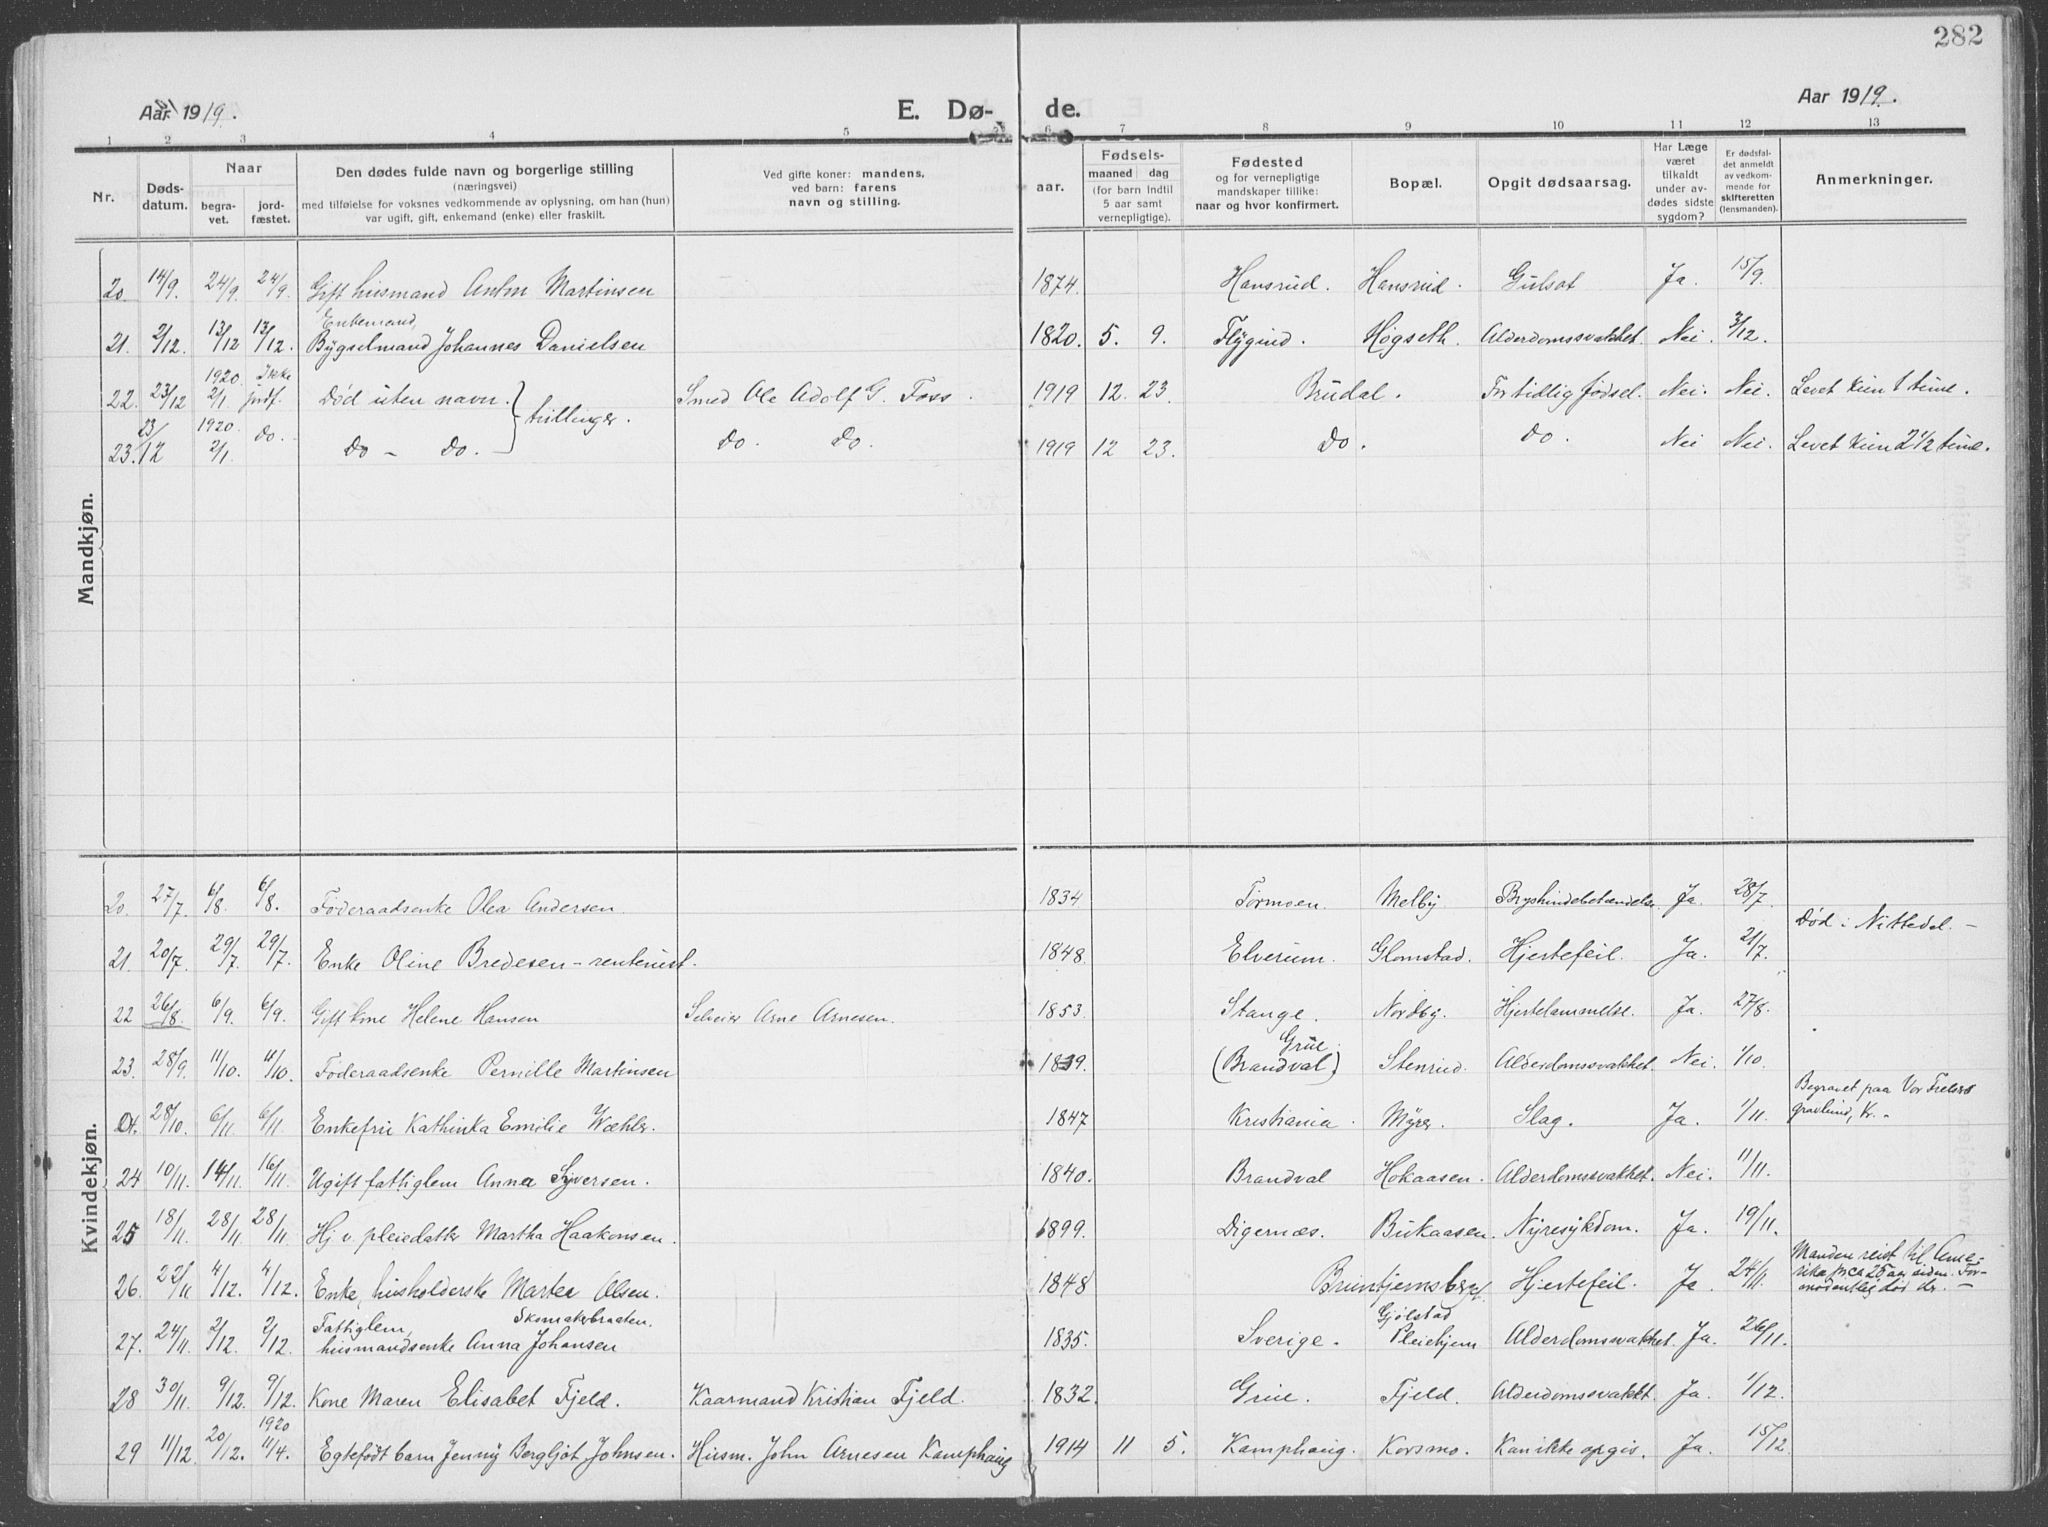 282
Aar 1919.
E. Dø-
de.
Aar 1919.
1 2 3 4 5 6 7 8 9 10 11 12 13
Nr.
Døds-
datum.
Naar
begra-
vet.
jord-
fæstet.
Den dødes fulde navn og borgerlige stilling
(næringsvei)
med tilføielse for voksnes vedkommende av oplysning, om han (hun)
var ugift, gift, enkemand (enke) eller fraskilt.
Ved gifte koner: mandens,
ved barn: farens
navn og stilling.
aar.
Fødsels-
maaned dag
(for barn indtil
5 aar samt
vernepligtige).
Fødested
og for vernepligtige
mandskaper tillike:
naar og hvor konfirmert.
Bopæl.
Opgit dødsaarsag.
Har Læge
været
tilkaldt
under av-
dødes sidste
sygdom?
Er dødsfal-
det anmeldt
av vedkom-
mende for
skifteretten
(lensmanden).
Anmerkninger.
Mandkjøn.
20. 14/9. 24/9. 24/9. Gift husmand Anton Martinsen 1874. Hansrud. Hansrud. Gulsot Ja. 15/9.
Enkemand,
21. 2/12. 13/12 13/12. Bygselmand Johannes Danielsen 1820. 5. 9. Flygind. Høgseth. Alderdomssvakhet. Nei. 3/12.
1920. Ikke
22. 23/12 2/1. jordf. Død uten navn. } trillinger. Smed Ole Adolf G. Foss. 1919 12. 23. Brudal. For tidlig fødsel. Nei. Nei. Levet kun 1 time.
1920.
23. 23/12 2/1. Do. Do - Do. Do. Do. 1919 12 23. Do. Do. Nei Nei. Levet kun 2 1/2 time.
Kvindekjøn.
20. 27/7. 6/8. 6/8. Føderaadsenke Olea Andersen. 1834. Tormoen Melby. Brysthindebetændelse. Ja. 28/7.
Død i Nittedal. -
21. 20/7. 29/7. 29/7. Enke Oline Bredesen - rentenist. 1848. Elverum. Glomstad. Hjertefeil. Ja. 21/7.
22 26/8. 6/9. 6/9. Gift kone Helene Hansen Selveier Arne Arnesen. 1853. Stange. Nordby. Hjertelammelse. Ja. 27/8.
Grue.
23. 28/9. 11/10. 11/10. Føderaadsenke Pernille Martinsen 1839. (Brandval) Stenrud. Alderdomssvakhet. Nei. 1/10.
Begravet paa Vor Frelsers
gravlund, Kr. -
28/10. 6/11. 6/11. Enkefru Kathinka Emilie Wæhler. 1847 Kristiania. Myrer. Slag. Ja. 1/11.
24 10/11. 14/11. 16/11. Ugift fattiglem Anna Syversen. 1840. Brandval Hokaasen. Alderdomssvakhet. Nei. 11/11.
25 18/11. 28/11 28/11. Hj. v. pleiedatter Martha Haakonsen. 1899. Digernæs. Bukaasen. Nyresykdom. Ja. 19/11.
Manden reist til Ame-
rika for ca 25 aar siden. For-
modentlig død der. -
26. 22/11 4/12. 4/12. Enke, husholderske Martea Olsen. 1848 Bruntjernsberg. Hjertefeil. Ja 24/11.
Fattiglem, Skomakerbraaten. Gjølstad
27. 24/11. 2/12. 2/12. husmandsenke Anna Johansen 1835. Sverige. Pleiehjem Alderdomssvakhet. Ja. 26/11.
28 30/11. 9/12. 9/12. Kone Maren Elisabet Fjeld. Kaarmand Kristian Fjeld. 1832. Grue. Fjeld. Alderdomssvakht. Ja. 1/12.
1920
29 11/12. 20/12. 11/4. Egtefødt barn Jenny Bergljot Johnsen. Husm. John Arnesen Kamphaug 1914 11 5. Kamphaug. Korsmo. Kan ikke opgis. Ja. 15/12.